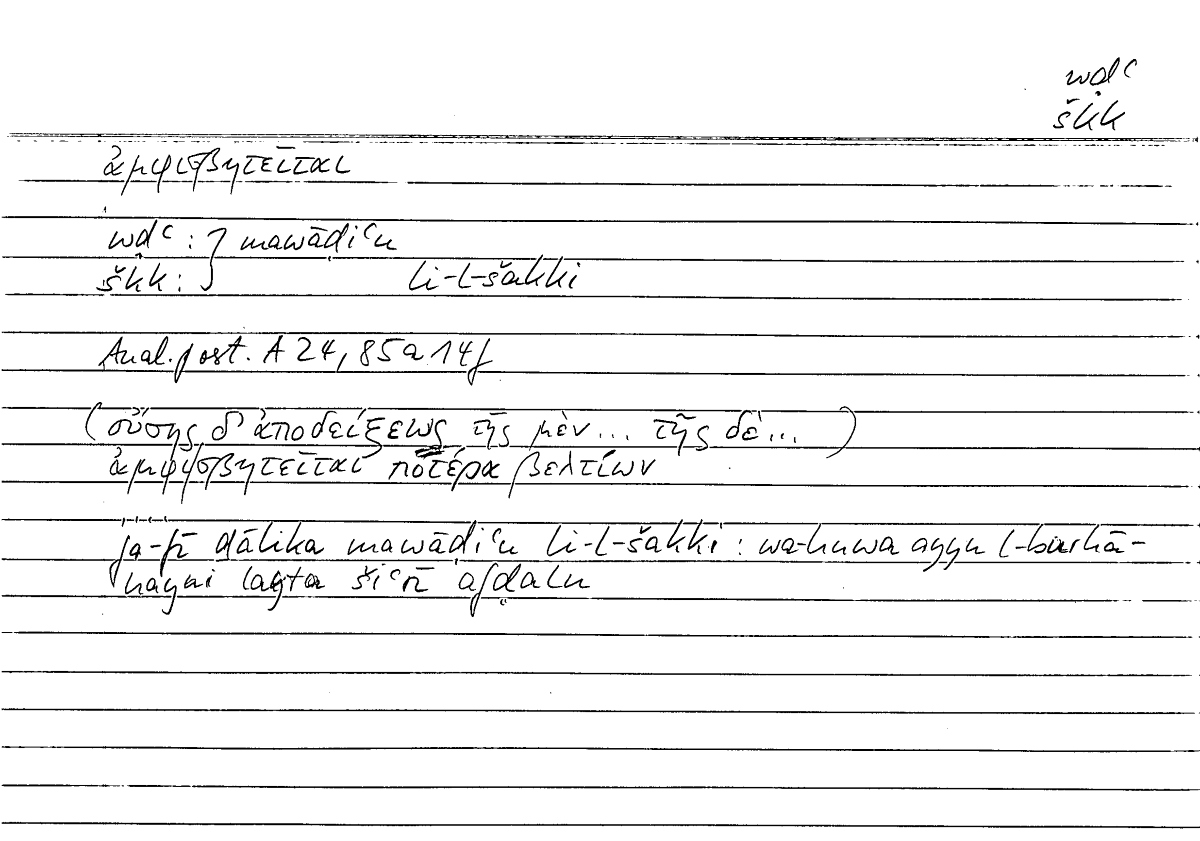 wḍʿ
škk
ἀμφισβητεῖται
wḍʿ : } mawāḍiʿu
škk : } li-l-šakki
Anal. post. A 24, 85a 14f
(οὔσης δ' ἀποδείξεως τῆς μὲν ... τῆς δὲ ... )
ἀμφισβητεῖται ποτέρα βελτίων
fa-fī ḏālika mawāḍiʿu li-l-šakki : wa-huwa ayyu l-burhā-
nayni layta šiʿrī afḍalu